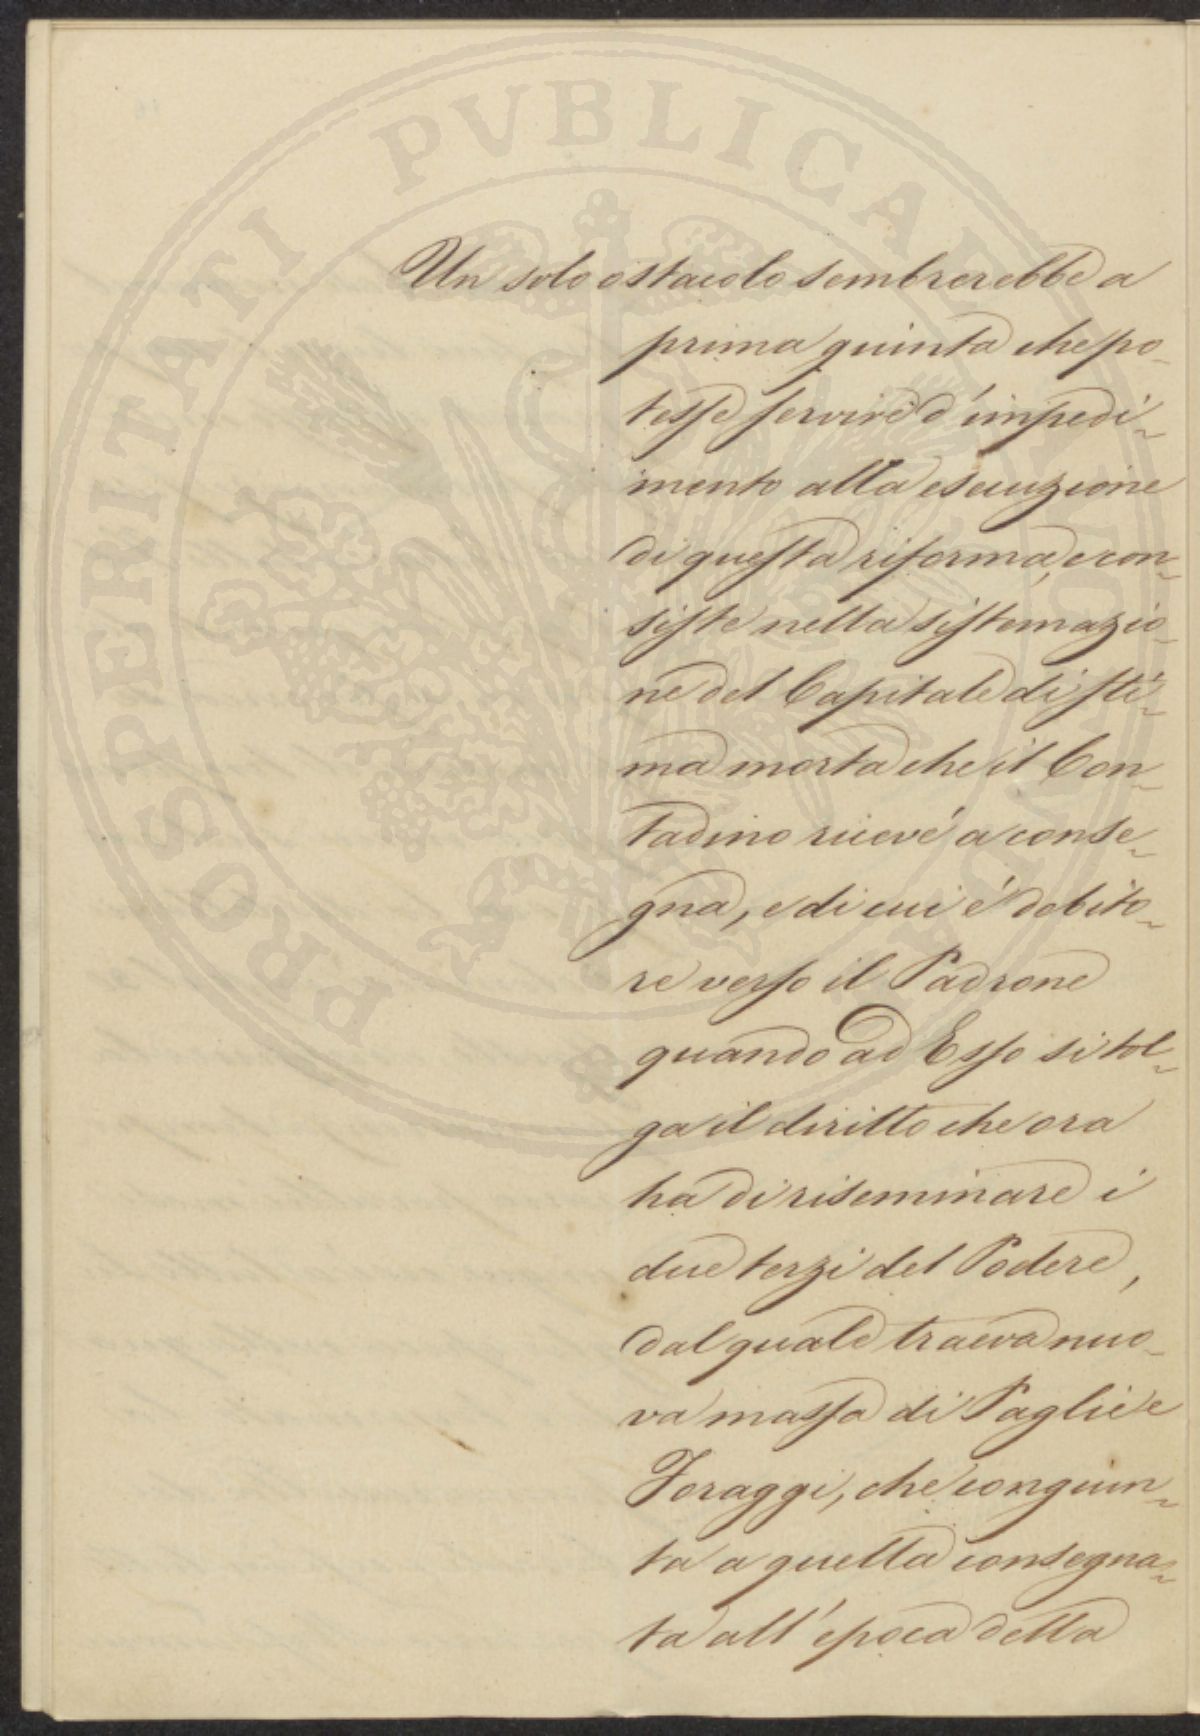 Un solo ostacolo sembrerebbe a
prima giunta che po-
tesse servire d'impedi-
mento alla esecuzione
di questa riforma, e con-
siste nella sistemazio-
ne del Capitale di sti-
ma morta che il Con-
tadino riceve a conse-
gna, e di cui é debito-
re verso il Padrone
quando ad Esso si tol-
ga il diritto che ora
ha di riseminare i
due terzi del Podere,
dal quale traeva nuo-
va massa di Paglie e
Foraggi, che congiun-
ta a quella consegna-
ta all'época della
PROSPERITATI PVBLICAE